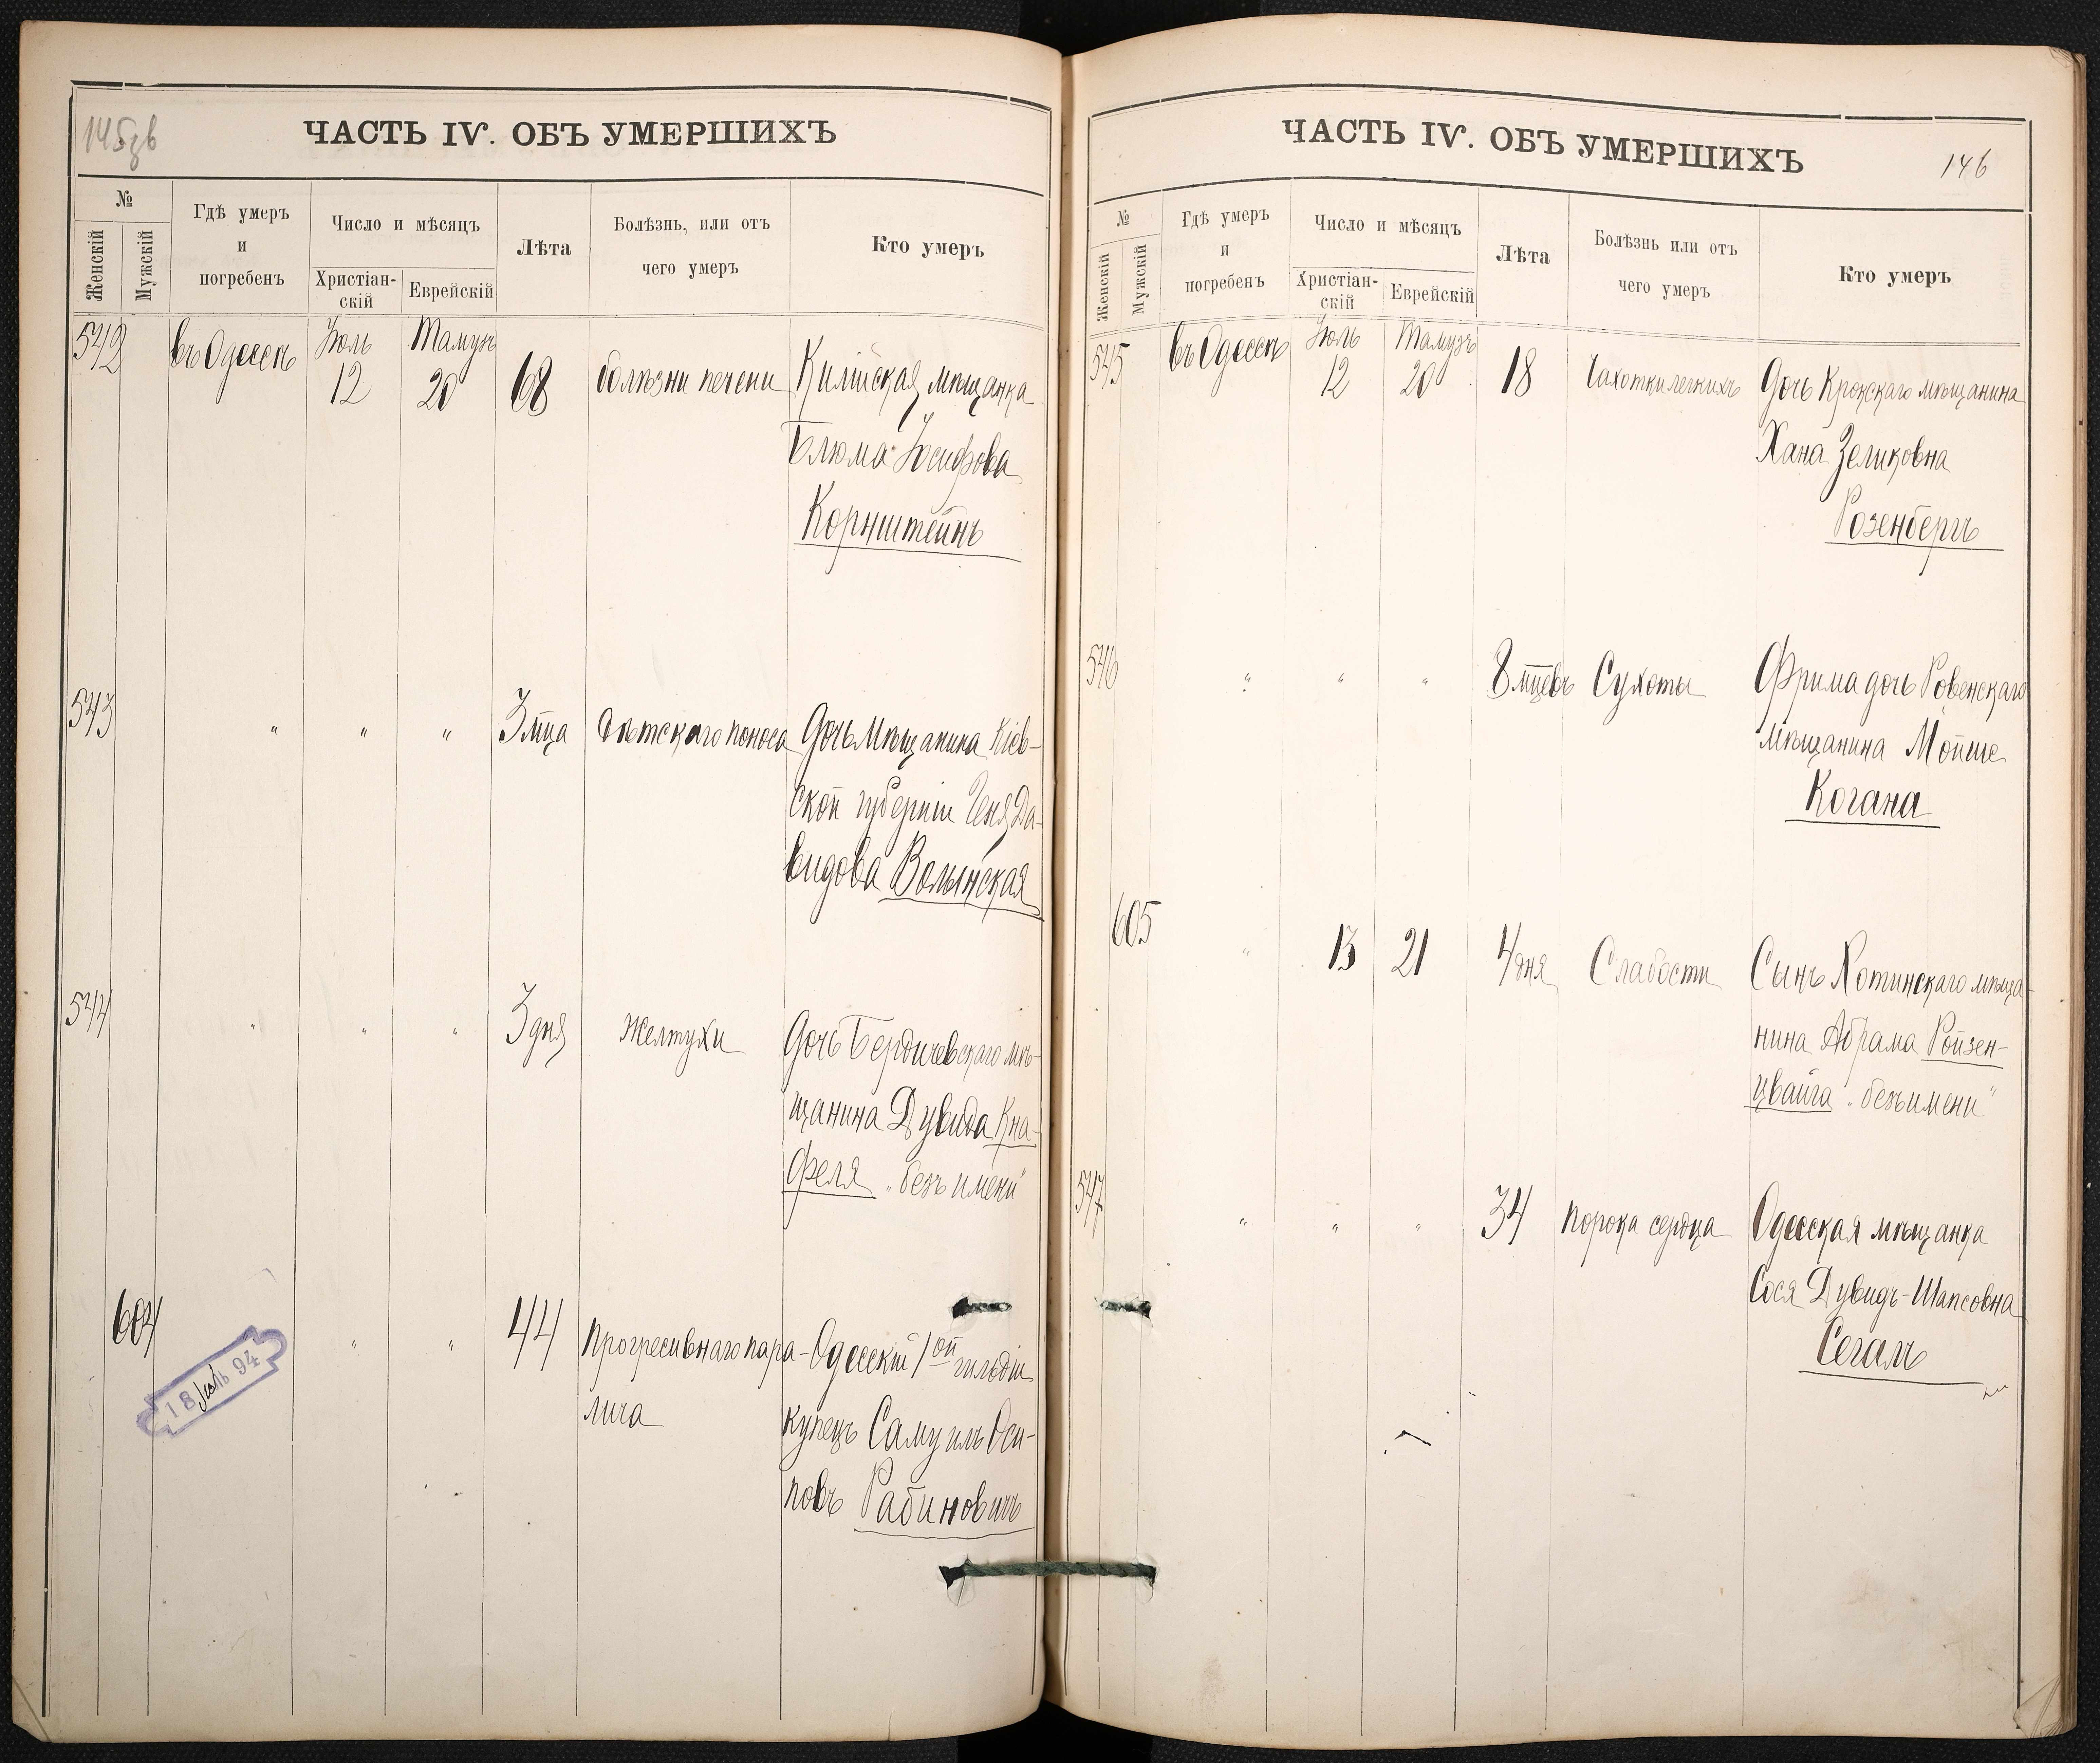 145зв
ЧАСТЬ IV. ОБЪ УМЕРШИХЪ
№
Женскій
Мужскій
Гдѣ умеръ
и
погребенъ
Число и мѣсяцъ
Христіан-
скій
Еврейскій
Лѣта
Болѣзнь, или отъ
чего умеръ
Кто умеръ
542
въ Одессѣ
Іюль
12
Тамузъ
20
68
болѣзни печени
Килійская мѣщанка
Блюма Іосифова
Корнштейнъ
543
"
"
"
3 м̃ца
Дѣтскаго поноса
Дочь мѣщанина Кіев-
ской губерніи Геня Да-
видова Волынская
544
"
"
"
3 дня
Желтухи
Дочь Бердичевскаго мѣ-
щанина Дувида Кна-
феля „безъ имени"
604
18 Іюль 94
"
"
44
Прогресивнаго пара-
лича
Одесскій 1ой гильдіи
купецъ Самуилъ Оси-
повъ Рабиновичъ
ЧАСТЬ IV. ОБЪ УМЕРШИХЪ
146
№
Женскій
Мужскій
Гдѣ умеръ
и
погребенъ
Число и мѣсяцъ
Христіан-
скій
Еврейскій
Лѣта
Болѣзнь или отъ
чего умеръ
Кто умеръ
545
въ Одессѣ
Іюль
12
Тамузъ
20
18
Чахотки легкихъ
Дочь Крокскаго мѣщанина
Хана Зеликовна
Розенбергъ
546
"
"
"
8 м̃цевъ
Сухоты
Фрима дочь Ровенскаго
мѣщанина Мойше
Когана
605
"
13
21
4 дня
Слабости
Сынъ Хотинскаго мѣща-
нина Абрама Ройзен-
цвайга „безъ имени"
547
"
"
"
34
Порока сердца
Одесская мѣщанка
Сося Дувидъ-Шапсовна
Сегалъ